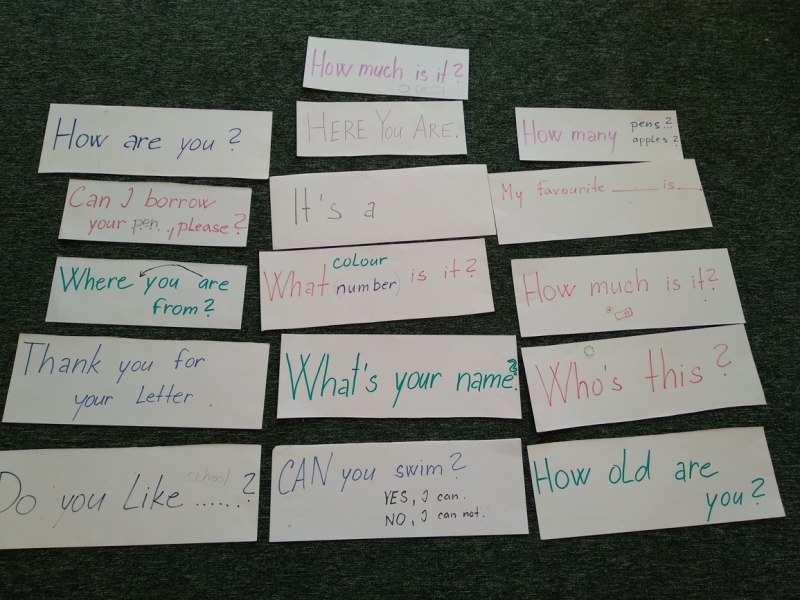 How much is it?
HERE YOU ARE.
How are you?
How many pens..?
apples?
Can I borrow
your pen.., please?
It's a
My favourite ______ is ___.
Where you are
from?
What colour
(number) is it?
How much is it?
Thank you for
your Letter.
What's your name?
Who's this?
Do you Like ......?
school
CAN you swim?
YES, I can.
NO, I can not.
How old are
you?